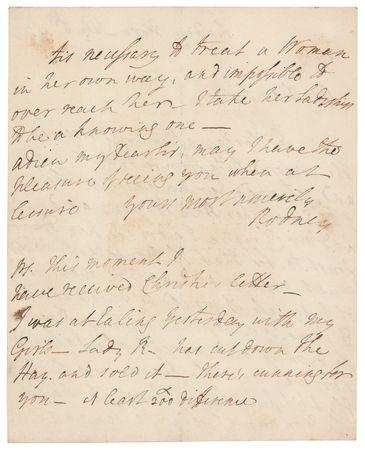 tis necessary to treat a Woman
in her own way, and impossible to
over reach her I take her Ladyship
to be a knowing one —
adieu my Dear Sir, may I have the
Pleasure of seeing you when at
leisure Yours most sincerely
Rodney
Ps. This moment I
have received Christies letter —
I was at Ealing Yesterday with my
Girls — Lady R— has cut down the
Hay. and sold it — there's cunning for
you — at least 200 difference